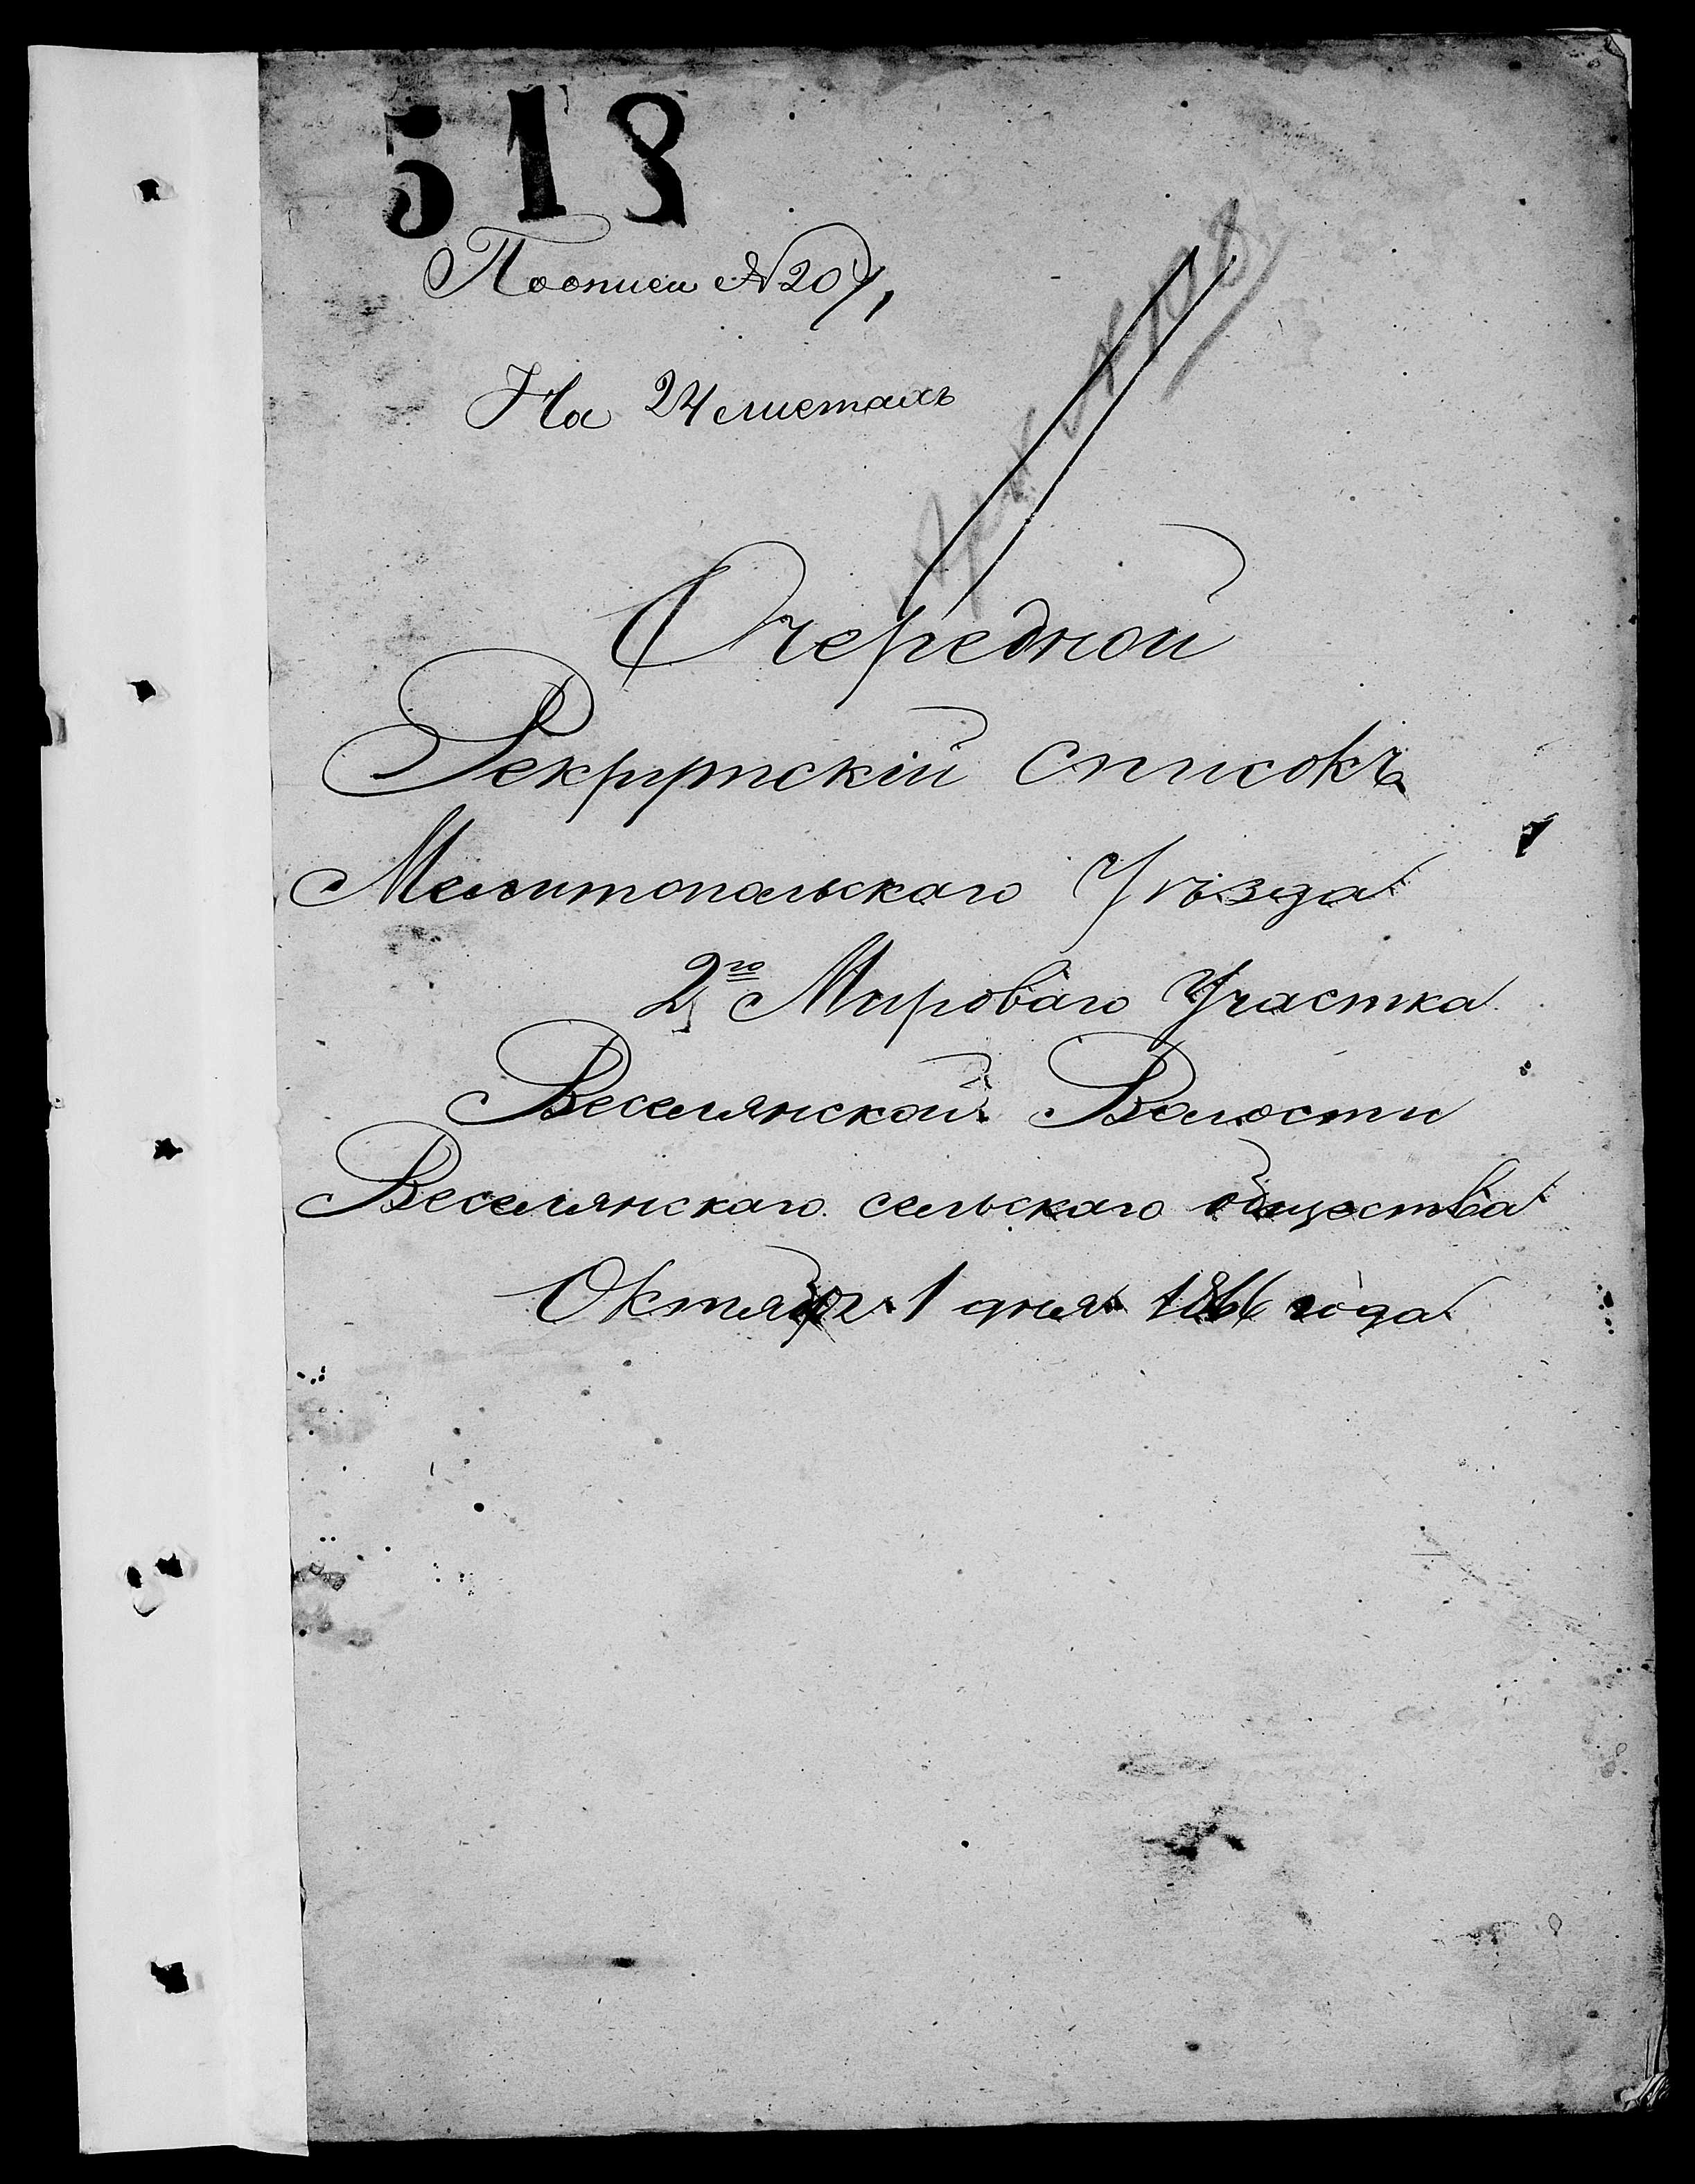 518
По описи № 207,
На 24 листахъ
Арх № 198
Очередной
Рекрутскій списокъ
Мелитопольскаго Уѣзда
2го Мироваго Участка
Веселянской Волости
Веселянскаго сельскаго общества
Октября 1 дня 1866 года